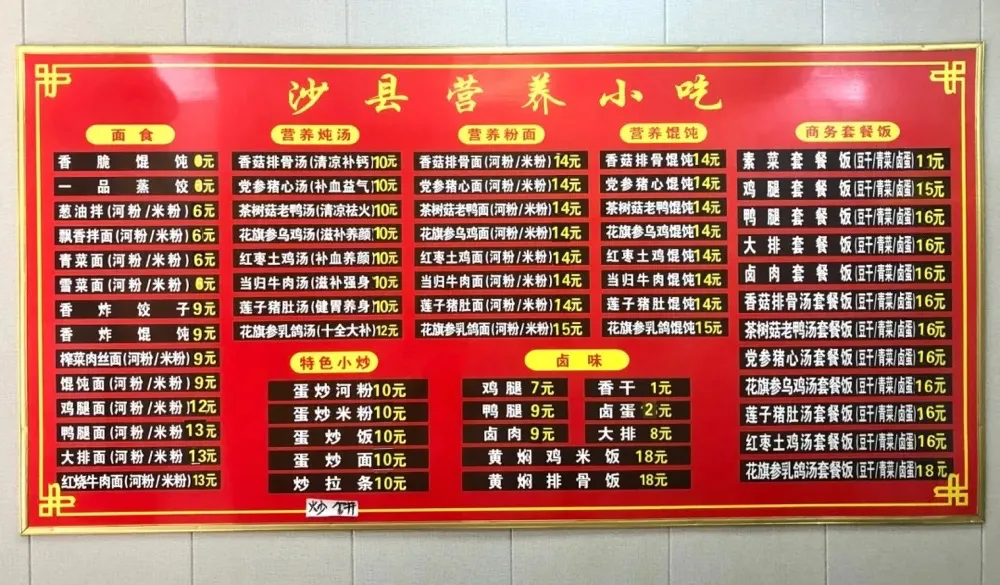 沙县营养小吃
面食
香脆馄饨6元
一品蒸饺6元
葱油拌(河粉/米粉)6元
飘香拌面(河粉/米粉)6元
青菜面(河粉/米粉)6元
雪菜面(河粉/米粉)6元
香炸饺子9元
香炸馄饨9元
榨菜肉丝面(河粉/米粉)9元
馄饨面(河粉/米粉)9元
鸡腿面(河粉/米粉)12元
鸭腿面(河粉/米粉)13元
大排面(河粉/米粉)13元
红烧牛肉面(河粉/米粉)13元
营养炖汤
香菇排骨汤(清凉补钙)10元
党参猪心汤(补血益气)10元
茶树菇老鸭汤(清凉祛火)10元
花旗参乌鸡汤(滋补养颜)10元
红枣土鸡汤(补血养颜)10元
当归牛肉汤(滋补强身)10元
莲子猪肚汤(健胃养身)10元
花旗参乳鸽汤(十全大补)12元
营养粉面
香菇排骨面(河粉/米粉)14元
党参猪心面(河粉/米粉)14元
茶树菇老鸭面(河粉/米粉)14元
花旗参乌鸡面(河粉/米粉)14元
红枣土鸡面(河粉/米粉)14元
当归牛肉面(河粉/米粉)14元
莲子猪肚面(河粉/米粉)14元
花旗参乳鸽面(河粉/米粉)15元
营养馄饨
香菇排骨馄饨14元
党参猪心馄饨14元
茶树菇老鸭馄饨14元
花旗参乌鸡馄饨14元
红枣土鸡馄饨14元
当归牛肉馄饨14元
莲子猪肚馄饨14元
花旗参乳鸽馄饨15元
商务套餐饭
素菜套餐饭(豆干/青菜/卤蛋)11元
鸡腿套餐饭(豆干/青菜/卤蛋)15元
鸭腿套餐饭(豆干/青菜/卤蛋)16元
大排套餐饭(豆干/青菜/卤蛋)16元
卤肉套餐饭(豆干/青菜/卤蛋)16元
香菇排骨汤套餐饭(豆干/青菜/卤蛋)16元
茶树菇老鸭汤套餐饭(豆干/青菜/卤蛋)16元
党参猪心汤套餐饭(豆干/青菜/卤蛋)16元
花旗参乌鸡汤套餐饭(豆干/青菜/卤蛋)16元
莲子猪肚汤套餐饭(豆干/青菜/卤蛋)16元
红枣土鸡汤套餐饭(豆干/青菜/卤蛋)16元
花旗参乳鸽汤套餐饭(豆干/青菜/卤蛋)18元
特色小炒
蛋炒河粉10元
蛋炒米粉10元
蛋炒饭10元
蛋炒面10元
炒拉条10元
炒饼
卤味
鸡腿7元
香干1元
鸭腿9元
卤蛋2元
卤肉9元
大排8元
黄焖鸡米饭18元
黄焖排骨饭18元